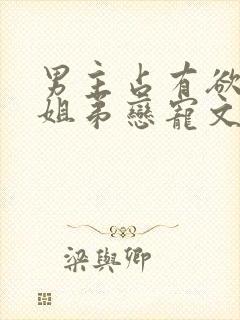 男主占有欲
姐弟戀寵文
梁與卿